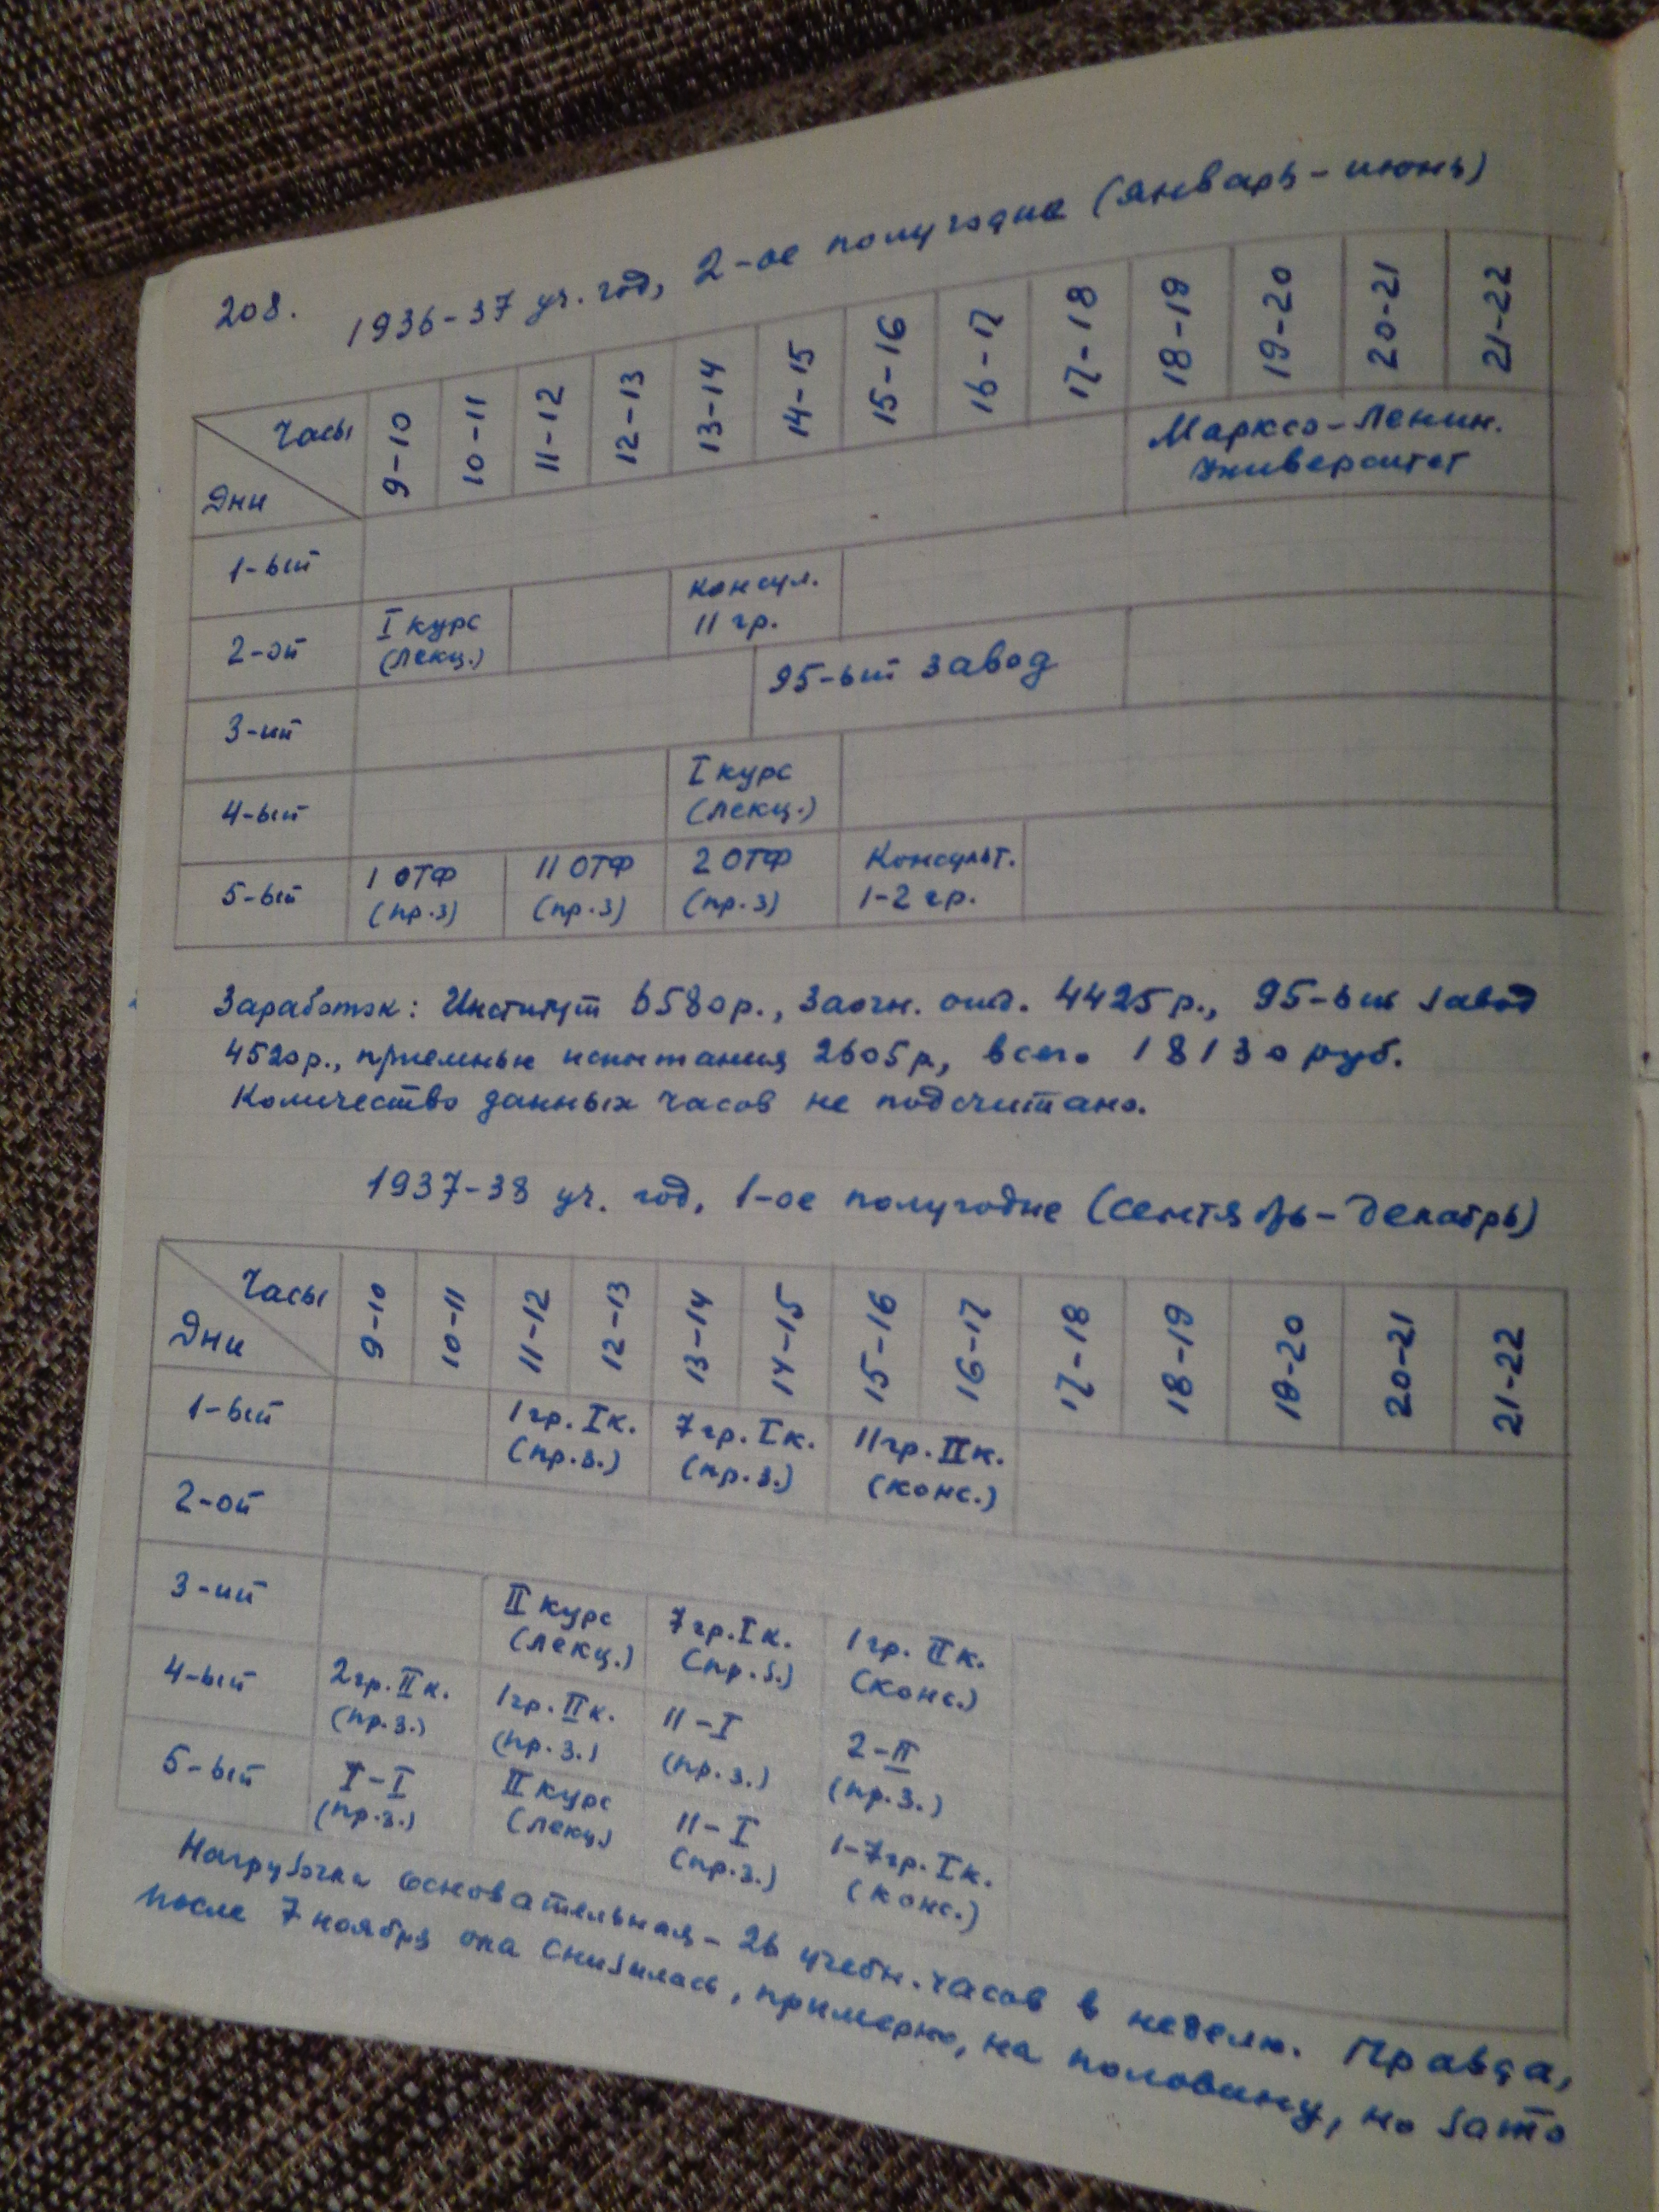 208.
1936-37 уч. год, 2-ое полугодие (январь - июнь)
Часы 9-10 10-11 11-12 12-13 13-14 14-15 15-16 16-17 17-18 18-19 19-20 20-21 21-22
Дни
1-ый Марксо-Ленин.
Университет
2-ой I курс (лекц.) Консул. 11 гр.
3-ий 95-ый завод
4-ый I курс (лекц.)
5-ый 1 ОТФ (пр.з) 11 ОТФ (пр.з) 2 ОТФ (пр.з) Консульт. 1-2 гр.
Заработок: Институт 6580р., Заочн. отд. 4425р., 95-ый завод
4520р., приемные испытания 2605р, всего 18130 руб.
Количество данных часов не подсчитано.
1937-38 уч. год, 1-ое полугодие (сентябрь - декабрь)
Часы 9-10 10-11 11-12 12-13 13-14 14-15 15-16 16-17 17-18 18-19 19-20 20-21 21-22
Дни
1-ый 1гр. Iк. (пр.з.) 7гр. Iк. (пр.з.) 11гр. IIк. (конс.)
2-ой
3-ий II курс (лекц.) 7гр. Iк. (пр.з.) 1гр. IIк. (конс.)
4-ый 2гр. IIк. (пр.з.) 1гр. IIк. (пр.з.) 11-I (пр.з.) 2-II (пр.з.)
5-ый I-I (пр.з.) II курс (лекц.) 11-I (пр.з.) 1-7гр. Iк. (конс.)
Нагрузочка основательная - 26 учебн. часов в неделю. Правда,
после 7 ноября она снизилась, примерно, на половину, но зато